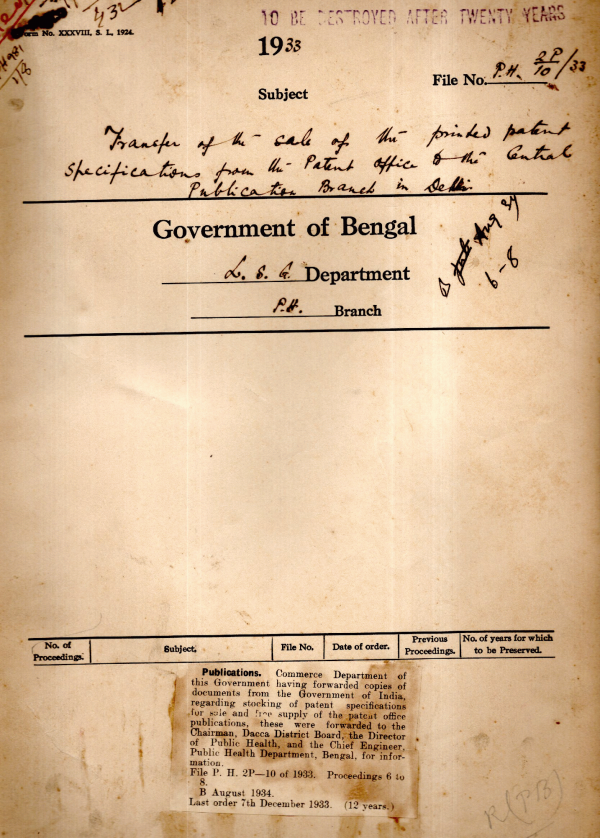 432
TO BE DESTROYED AFTER TWENTY YEARS
Form No. XXXVIII, S. L., 1924.
1933
File No. P.H. 2P/10/33
Subject
Transfer of the sale of the printed patent
Specifications from the Patent Office to the Central
Publication Branch in Delhi
Government of Bengal
L. S. G. Department
P.H. Branch
B Aug 34
6-8
No. of Proceedings. Subject. File No. Date of order. Previous Proceedings. No. of years for which to be Preserved.
Publications. Commerce Department of
this Government having forwarded copies of
documents from the Government of India,
regarding stocking of patent specifications
for sale and free supply of the patent office
publications, these were forwarded to the
Chairman, Dacca District Board, the Director
of Public Health, and the Chief Engineer,
Public Health Department, Bengal, for infor-
mation.
File P. H. 2P—10 of 1933. Proceedings 6 to
8.
B August 1934.
Last order 7th December 1933. (12 years.)
R(PB)